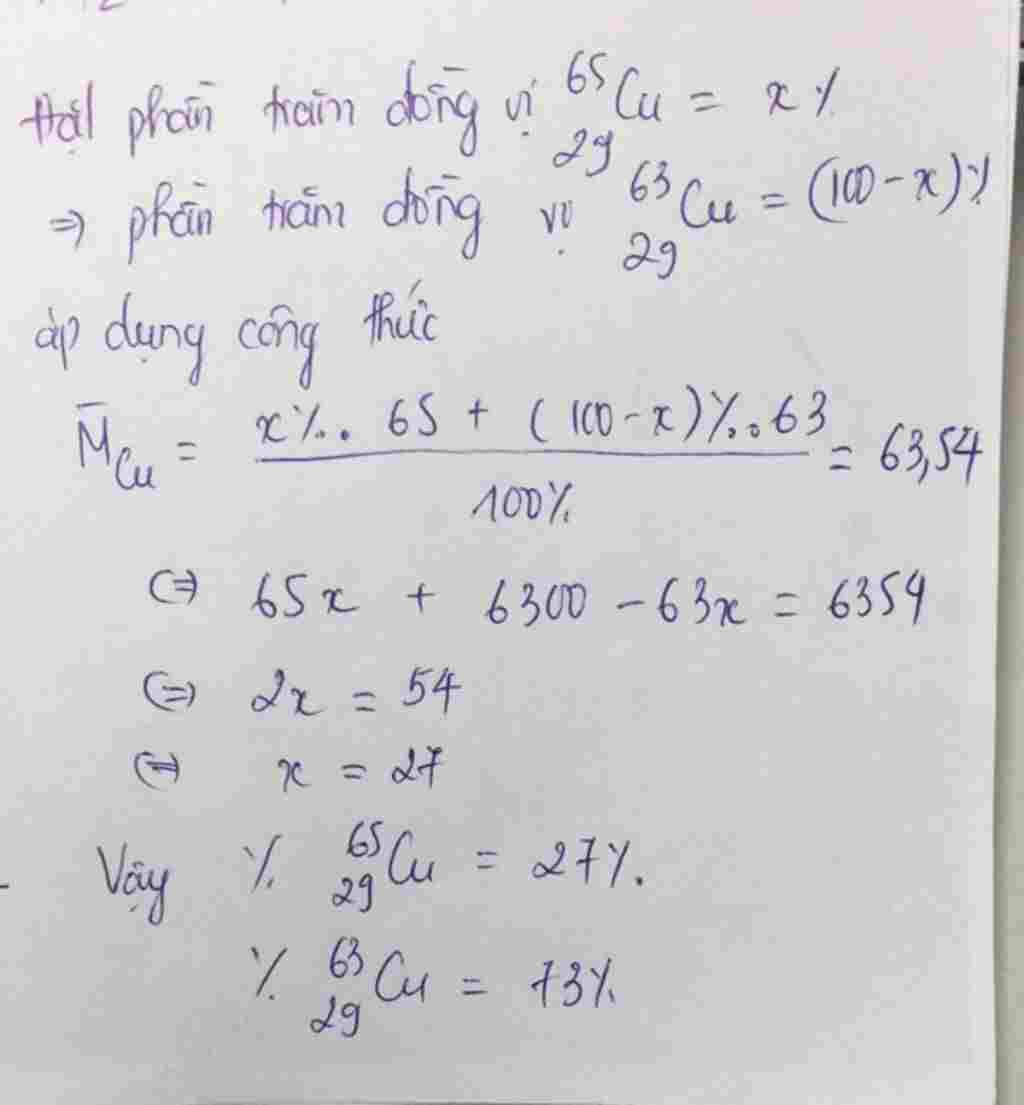 Đặt phần trăm đồng vị ⁶⁵₂₉Cu = x%
⇒ phần trăm đồng vị ⁶³₂₉Cu = (100 - x)%
áp dụng công thức
M̄_Cu = (x%. 65 + (100 - x)%.63) / 100% = 63,54
⇔ 65x + 6300 - 63x = 6354
⇔ 2x = 54
⇔ x = 27
Vậy % ⁶⁵₂₉Cu = 27%.
% ⁶³₂₉Cu = 73%